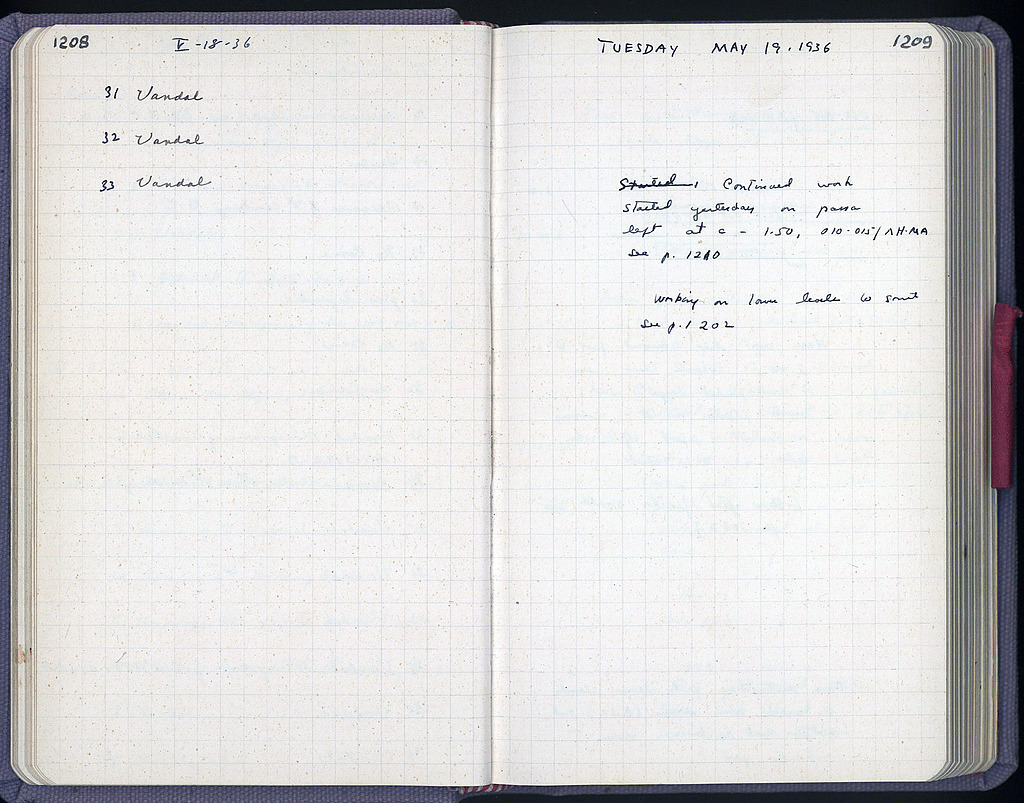 1208
V-18-36
31 Vandal
32 Vandal
33 Vandal
TUESDAY MAY 19. 1936
1209
Started, Continued work
started yesterday on passa
left at c - 1.50, 010-015/ΛH-MA
see p. 1210
working on lower levels to
See p. 1202